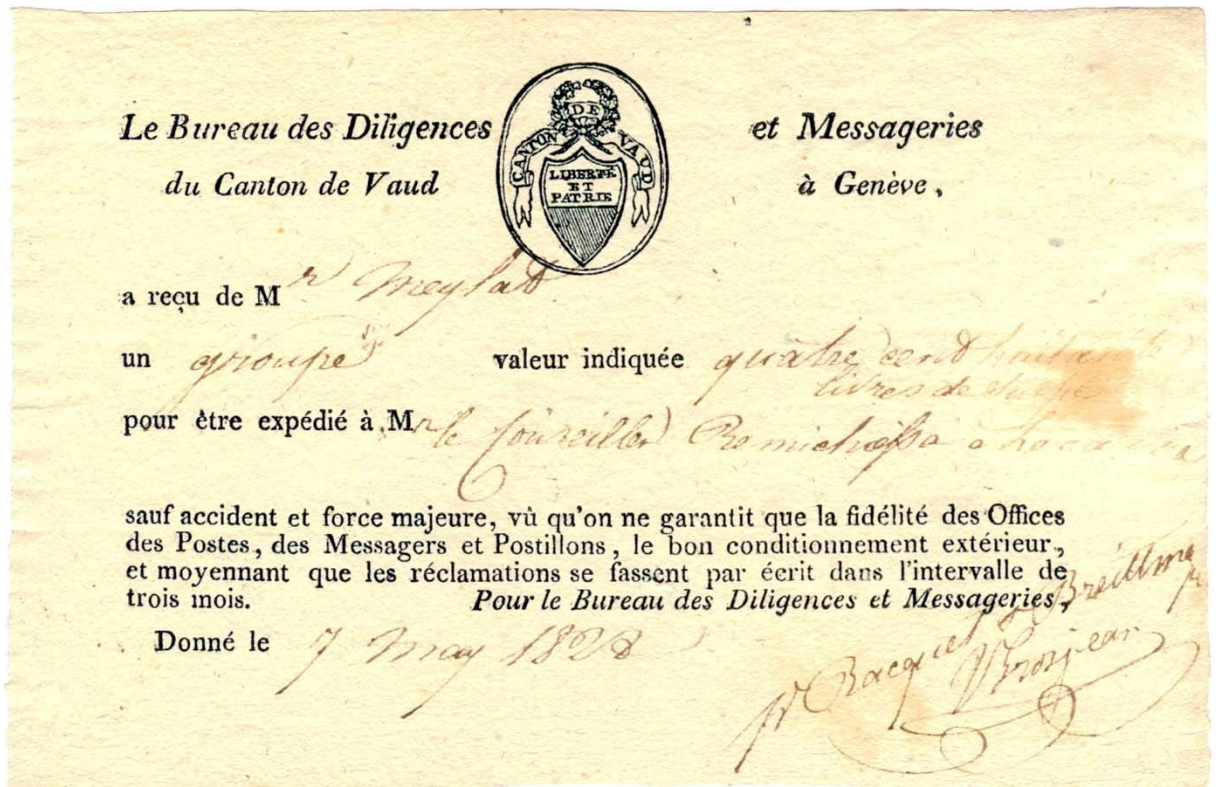 Le Bureau des Diligences et Messageries
du Canton de Vaud à Genève,
CANTON DE VAUD
LIBERTÉ
ET
PATRIE
a reçu de Mr
un groupe valeur indiquée quatre cent huitante
livres de Suisse
pour être expédié à Mr le Conseiller
sauf accident et force majeure, vû qu'on ne garantit que la fidélité des Offices
des Postes, des Messagers et Postillons, le bon conditionnement extérieur,
et moyennant que les réclamations se fassent par écrit dans l'intervalle de
trois mois. Pour le Bureau des Diligences et Messageries,
Donné le 7 May 1828